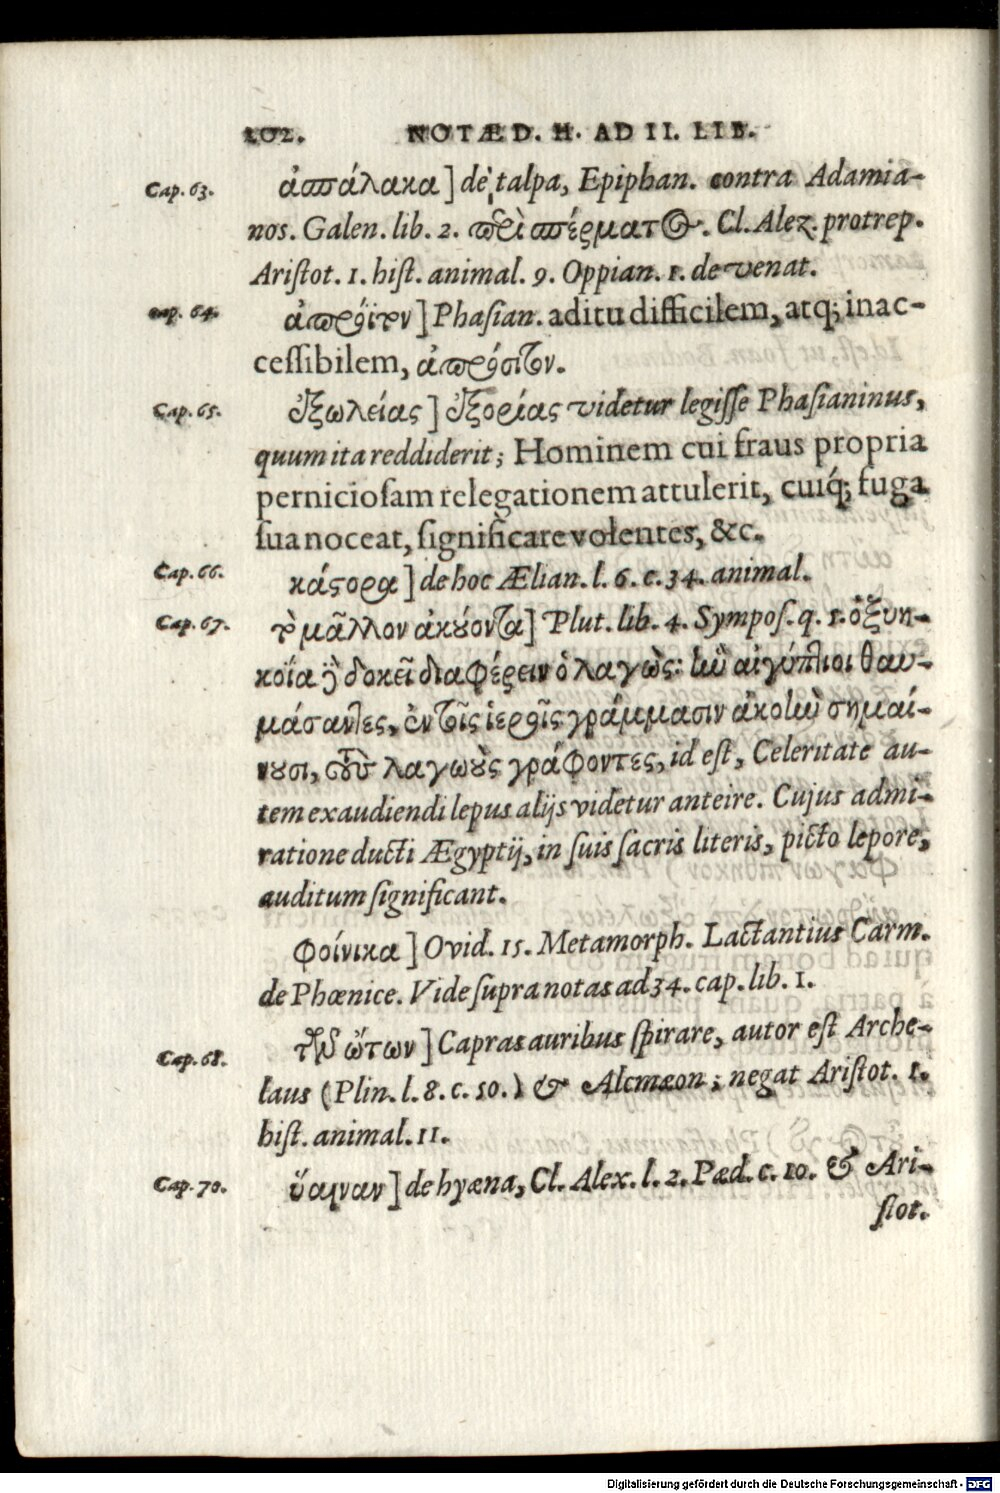 202. NOTÆ D. H. AD II. LIB.
Cap. 63. ἀσπάλακα ] de talpa, Epiphan. contra Adamia-
nos. Galen. lib. 2. περὶ σπέρματος. Cl. Alex. protrep.
Aristot. 1. hist. animal. 9. Oppian. 1. de venat.
cap. 64. ἀπρόϊτον ] Phasian. aditu difficilem, atq; inac-
cessibilem, ἀπρόσιτον.
Cap. 65. ἐξωλείας ] ἐξορίας videtur legisse Phasianinus,
quum ita reddiderit; Hominem cui fraus propria
perniciosam relegationem attulerit, cuiq́; fuga
sua noceat, significare volentes, &c.
Cap. 66. κάστορα ] de hoc Ælian. l. 6. c. 34. animal.
Cap. 67. τὸ μᾶλλον ἀκούοντα ] Plut. lib. 4. Sympos. q. 5. ὀξυη-
κοΐα δὲ δοκεῖ διαφέρειν ὁ λαγὼς: ἣν αἰγύπτιοι θαυ-
μάσαντες, ἐν τοῖς ἱεροῖς γράμμασιν ἀκοὴν σημαί-
νουσι, τοὺς λαγωοὺς γράφοντες, id est, Celeritate au-
tem exaudiendi lepus alijs videtur anteire. Cujus admi-
ratione ducti Ægyptij, in suis sacris literis, picto lepore,
auditum significant.
φοίνικα ] Ovid. 15. Metamorph. Lactantius Carm.
de Phœnice. Vide supra notas ad 34. cap. lib. 1.
Cap. 68. τῶν ὤτων ] Capras auribus spirare, autor est Arche-
laus (Plin. l. 8. c. 50.) & Alcmæon; negat Aristot. 1.
hist. animal. 11.
Cap. 70. ὕαιναν ] de hyæna, Cl. Alex. l. 2. Pæd. c. 10. & Ari-
stot.
Digitalisierung gefördert durch die Deutsche Forschungsgemeinschaft - DFG